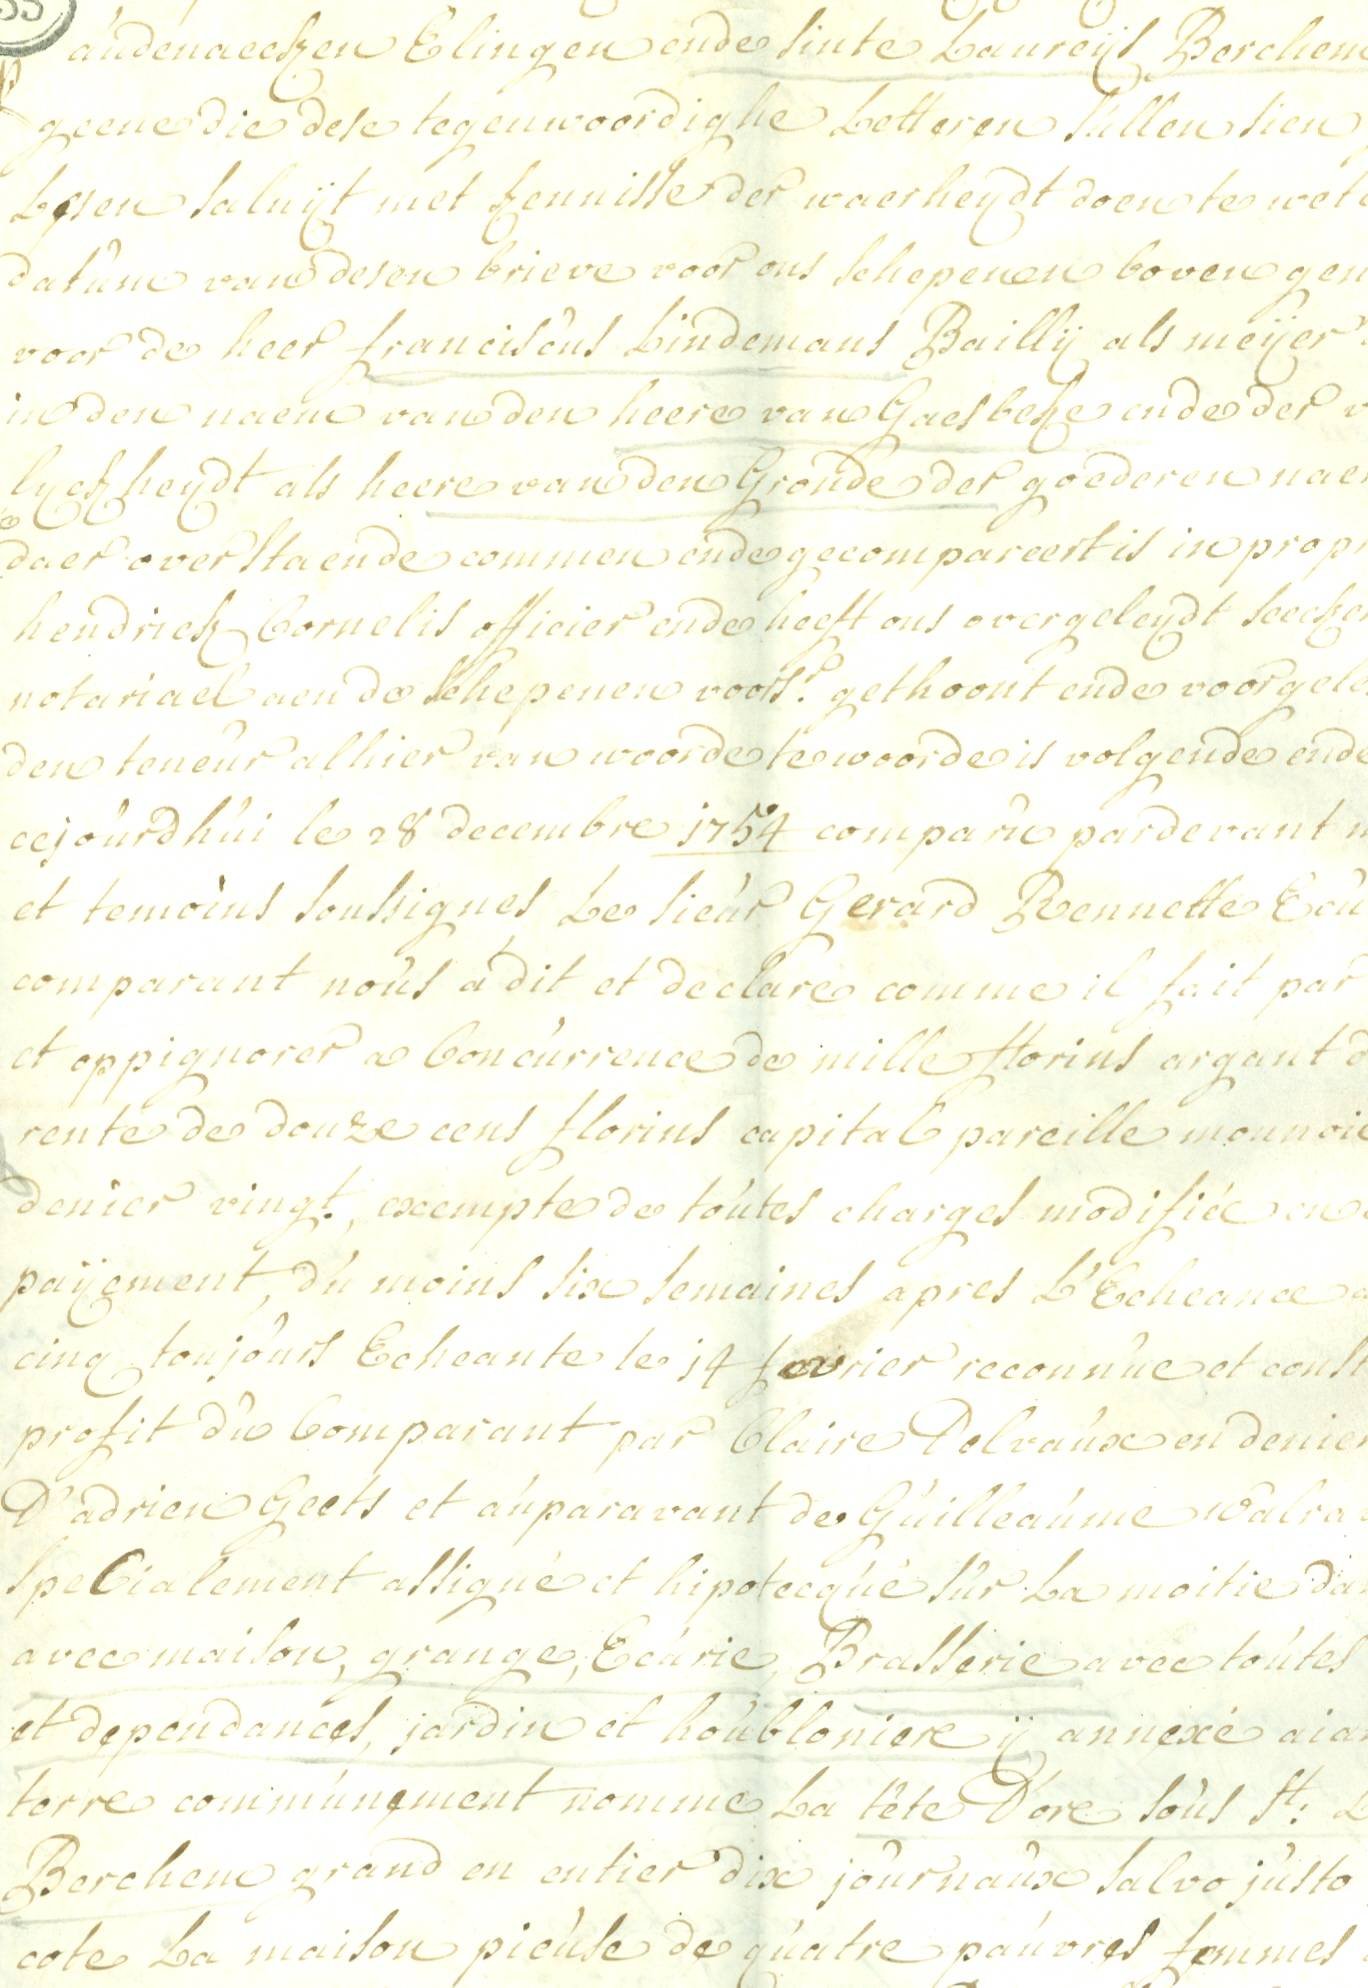 audenaecken Elingen ende sinte Laureijs Berchem
geene die dese tegenwoordighe Letteren sullen sien
Lesen saluijt met kennisse der waerheijdt doen te wet
datum van desen brieve voor ons schepenen boven gen
voor de heer franciscus Lindemans Baillij als meijer
in den naem van den heere van Gaesbeke ende der
lijckheijdt als heere van den Gronde der goederen naer
daer over staende commen ende gecompareert is in propr
hendrick Cornelis officier ende heeft ons overgeleijdt seecker
notariael aen de schepenen voors: gethoont ende voorgele
den teneur alhier van woorde te woorde is volgende ende
cejourdhui le 28 decembre 1754 comparu pardevant n
et temoins soussignes Le sieur Gerard Rennette Ecu
comparant nous a dit et declare comme il fait par
et oppignorer a Concurrence de mille florins argant d
rente de douze cens florins capital pareille monnoie
denier vingt, exempte de toutes charges modifiée en
paijement, du moins six semaines apres L'Echeance
cinq toujours Echeante le 14 fevrier reconnue et const
profit du Comparant par Claire Delvaux en denier
D'adrien Geets et auparavant de Guilleaume walra
speCialement assigné et hipotecqué sur La moitie d'
avec maison, grange, Ecurie, Brasserie avec toutes
et dependances, jardin et houbloniere ij annexé aia
terre communement nomme La tête D'ore sous St: L
Berchem grand en entier dix journaux salvo justo
cote La maison pieuse de quatre pauvres femmes